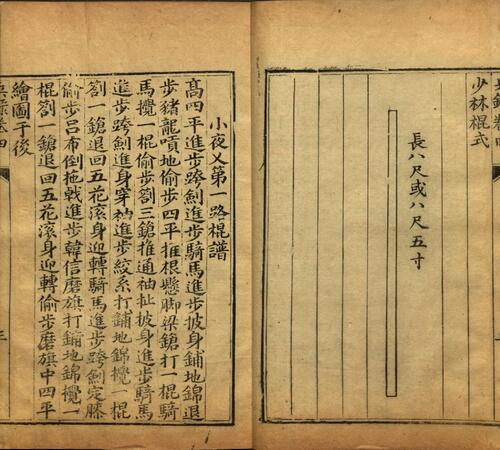 少林棍式
長八尺或八尺五寸
小夜叉第一路棍譜
高四平進步跨劍進步騎馬進步披身鋪地錦退
步猪龍嘖地偷步四平推根懸脚梁鎗打一棍騎
馬攪一棍偷步劄三鎗推通袖扯披身進步騎馬
進步跨劍進身穿袖進步絞系打鋪地錦攪一棍
劄一鎗退回五花滚身迎轉騎馬進步跨劍定膝
偷步吕布倒拖戟進步韓信磨旗打鋪地錦攪一
棍劄一鎗退回五花滚身迎轉偷步磨旗中四平
繪圖于後